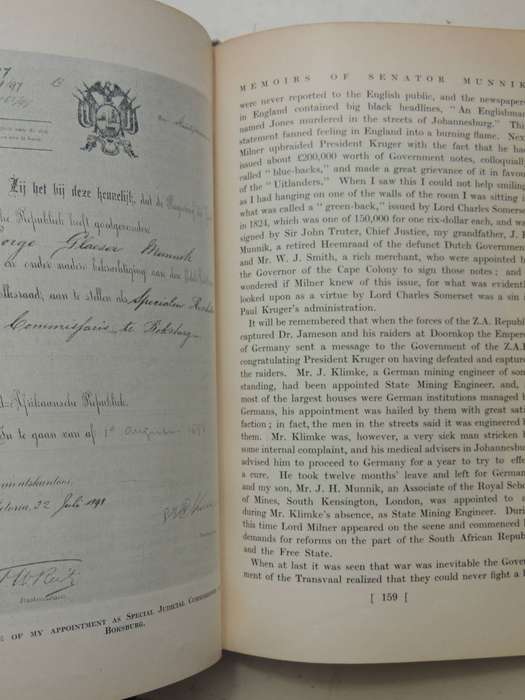 Zij het bij deze kennelijk, dat de
che Republiek heeft goedgevonden
George Glaeser Munnik
Volksraad, aan te stellen als Specialen
Commissaris te Boksburg
d-Afrikaansche Republiek.
In te gaan van af 1e
ernementskantoor,
etoria, 22 Juli 189
F W Reitz
Staatssecretaris.
E OF MY APPOINTMENT AS SPECIAL JUDICIAL
BOKSBURG.
MEMOIRS OF SENATOR MUNNIK
were never reported to the English public, and the newspaper
in England contained big black headlines, "An Englishman
named Jones murdered in the streets of Johannesburg." Th
statement fanned feeling in England into a burning flame. Ne
Milner upbraided President Kruger with the fact that he ha
issued about £200,000 worth of Government notes, colloquiall
called "blue-backs," and made a great grievance of it in favou
of the "Uitlanders." When I saw this I could not help smilin
as I had hanging on one of the walls of the room I was sitting i
what was called a "green-back," issued by Lord Charles Somerse
in 1824, which was one of 150,000 for one rix-dollar each, and wa
signed by Sir John Truter, Chief Justice, my grandfather, J.
Munnik, a retired Heemraad of the defunct Dutch Government
and Mr. W. J. Smith, a rich merchant, who were appointed b
the Governor of the Cape Colony to sign those notes; and
wondered if Milner knew of this issue, for what was evidentl
looked upon as a virtue by Lord Charles Somerset was a sin i
Paul Kruger's administration.
It will be remembered that when the forces of the Z.A. Republi
captured Dr. Jameson and his raiders at Doornkop the Empero
of Germany sent a message to the Government of the Z.A.
congratulating President Kruger on having defeated and capture
the raiders. Mr. J. Klimke, a German mining engineer of som
standing, had been appointed State Mining Engineer, and,
most of the largest houses were German institutions managed b
Germans, his appointment was hailed by them with great satis
faction; in fact, the men in the streets said it was engineered b
them. Mr. Klimke was, however, a very sick man stricken b
some internal complaint, and his medical advisers in Johannesbu
advised him to proceed to Germany for a year to try to effe
a cure. He took twelve months' leave and left for Germany
and my son, Mr. J. H. Munnik, an Associate of the Royal Scho
of Mines, South Kensington, London, was appointed to a
during Mr. Klimke's absence, as State Mining Engineer. Duri
this time Lord Milner appeared on the scene and commenced h
demands for reforms on the part of the South African Republ
and the Free State.
When at last it was seen that war was inevitable the Gover
ment of the Transvaal realized that they could never fight a b
[ 159 [